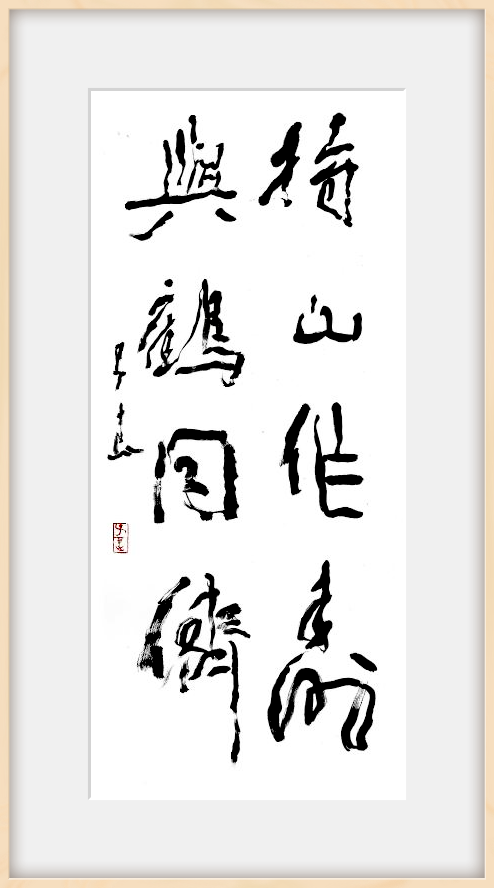 持山作壽
與鶴同儕